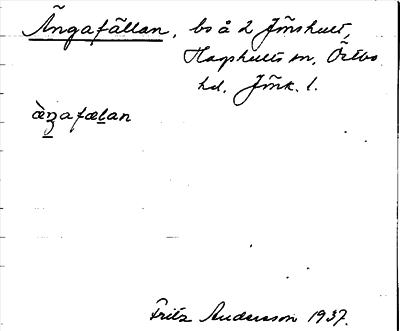 Ängafällan, bo å 2 Jönshult,
Hagshults sn, Östbo
hd. Jönk. l.
Fritz Andersson 1937.